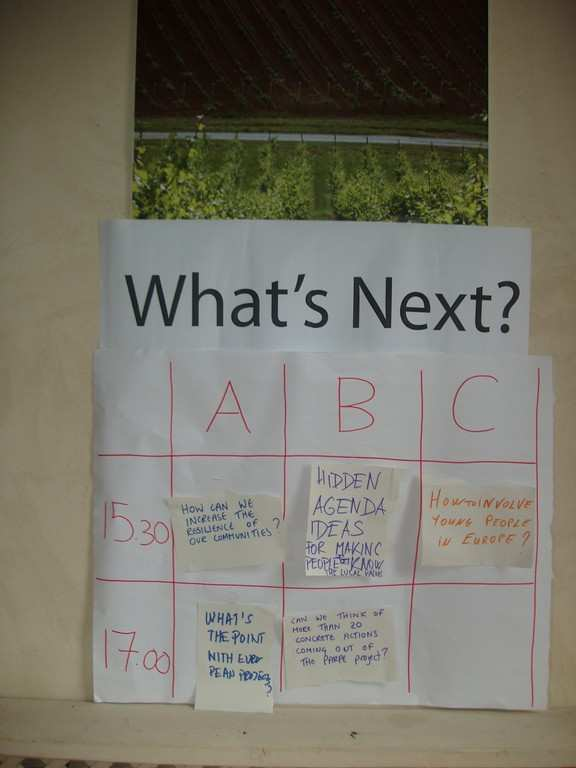 What's Next?
A B C
15.30
HOW CAN WE
INCREASE THE
RESILIENCE OF
OUR COMMUNITIES?
HIDDEN
AGENDA
IDEAS
FOR MAKING
PEOPLE KNOW
THE LOCAL VALUES
HOW TO INVOLVE
YOUNG PEOPLE
IN EUROPE?
17.00
WHAT'S
THE POINT
WITH EURO
PEAN PROJECTS
?
CAN WE THINK OF
MORE THAN 20
CONCRETE ACTIONS
COMING OUT OF
THE project?